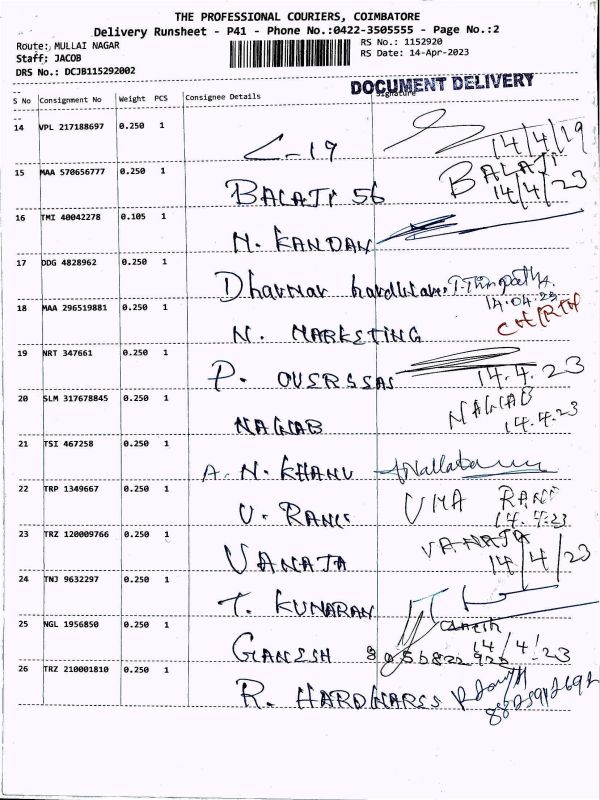 THE PROFESSIONAL COURIERS, COIMBATORE
Delivery Runsheet - P41 - Phone No.:0422-3505555 - Page No.:2
Route: MULLAI NAGAR RS No.: 1152920
Staff: JACOB RS Date: 14-Apr-2023
DRS No.: DCJB115292002
DOCUMENT DELIVERY
S No Consignment No Weight PCS Consignee Details Signature
14 VPL 217188697 0.250 1
C-19 14/4/19
15 MAA 570656777 0.250 1 BALAJI
BALAJI 56 14/4/23
16 TMI 40042278 0.105 1
N. KANDAN
17 DDG 4828962 0.250 1
Dharmar
14.04.23
18 MAA 296519881 0.250 1
N. MARKETING
19 NRT 347661 0.250 1
P. OVERSSAS 14.4.23
20 SLM 317678845 0.250 1 NAWAB
NAWAB 14.4.23
21 TSI 467258 0.250 1
A. N. KHANU
22 TRP 1349667 0.250 1 UMA RANI
U. RANI 14.4.23
23 TRZ 120009766 0.250 1 VANAJA
VANAJA 14/4/23
24 TNJ 9632297 0.250 1
T. KUNARAN
25 NGL 1956850 0.250 1 Ganesh
14/4/23
GANESH 8056822922
26 TRZ 210001810 0.250 1
R. HARDWARES